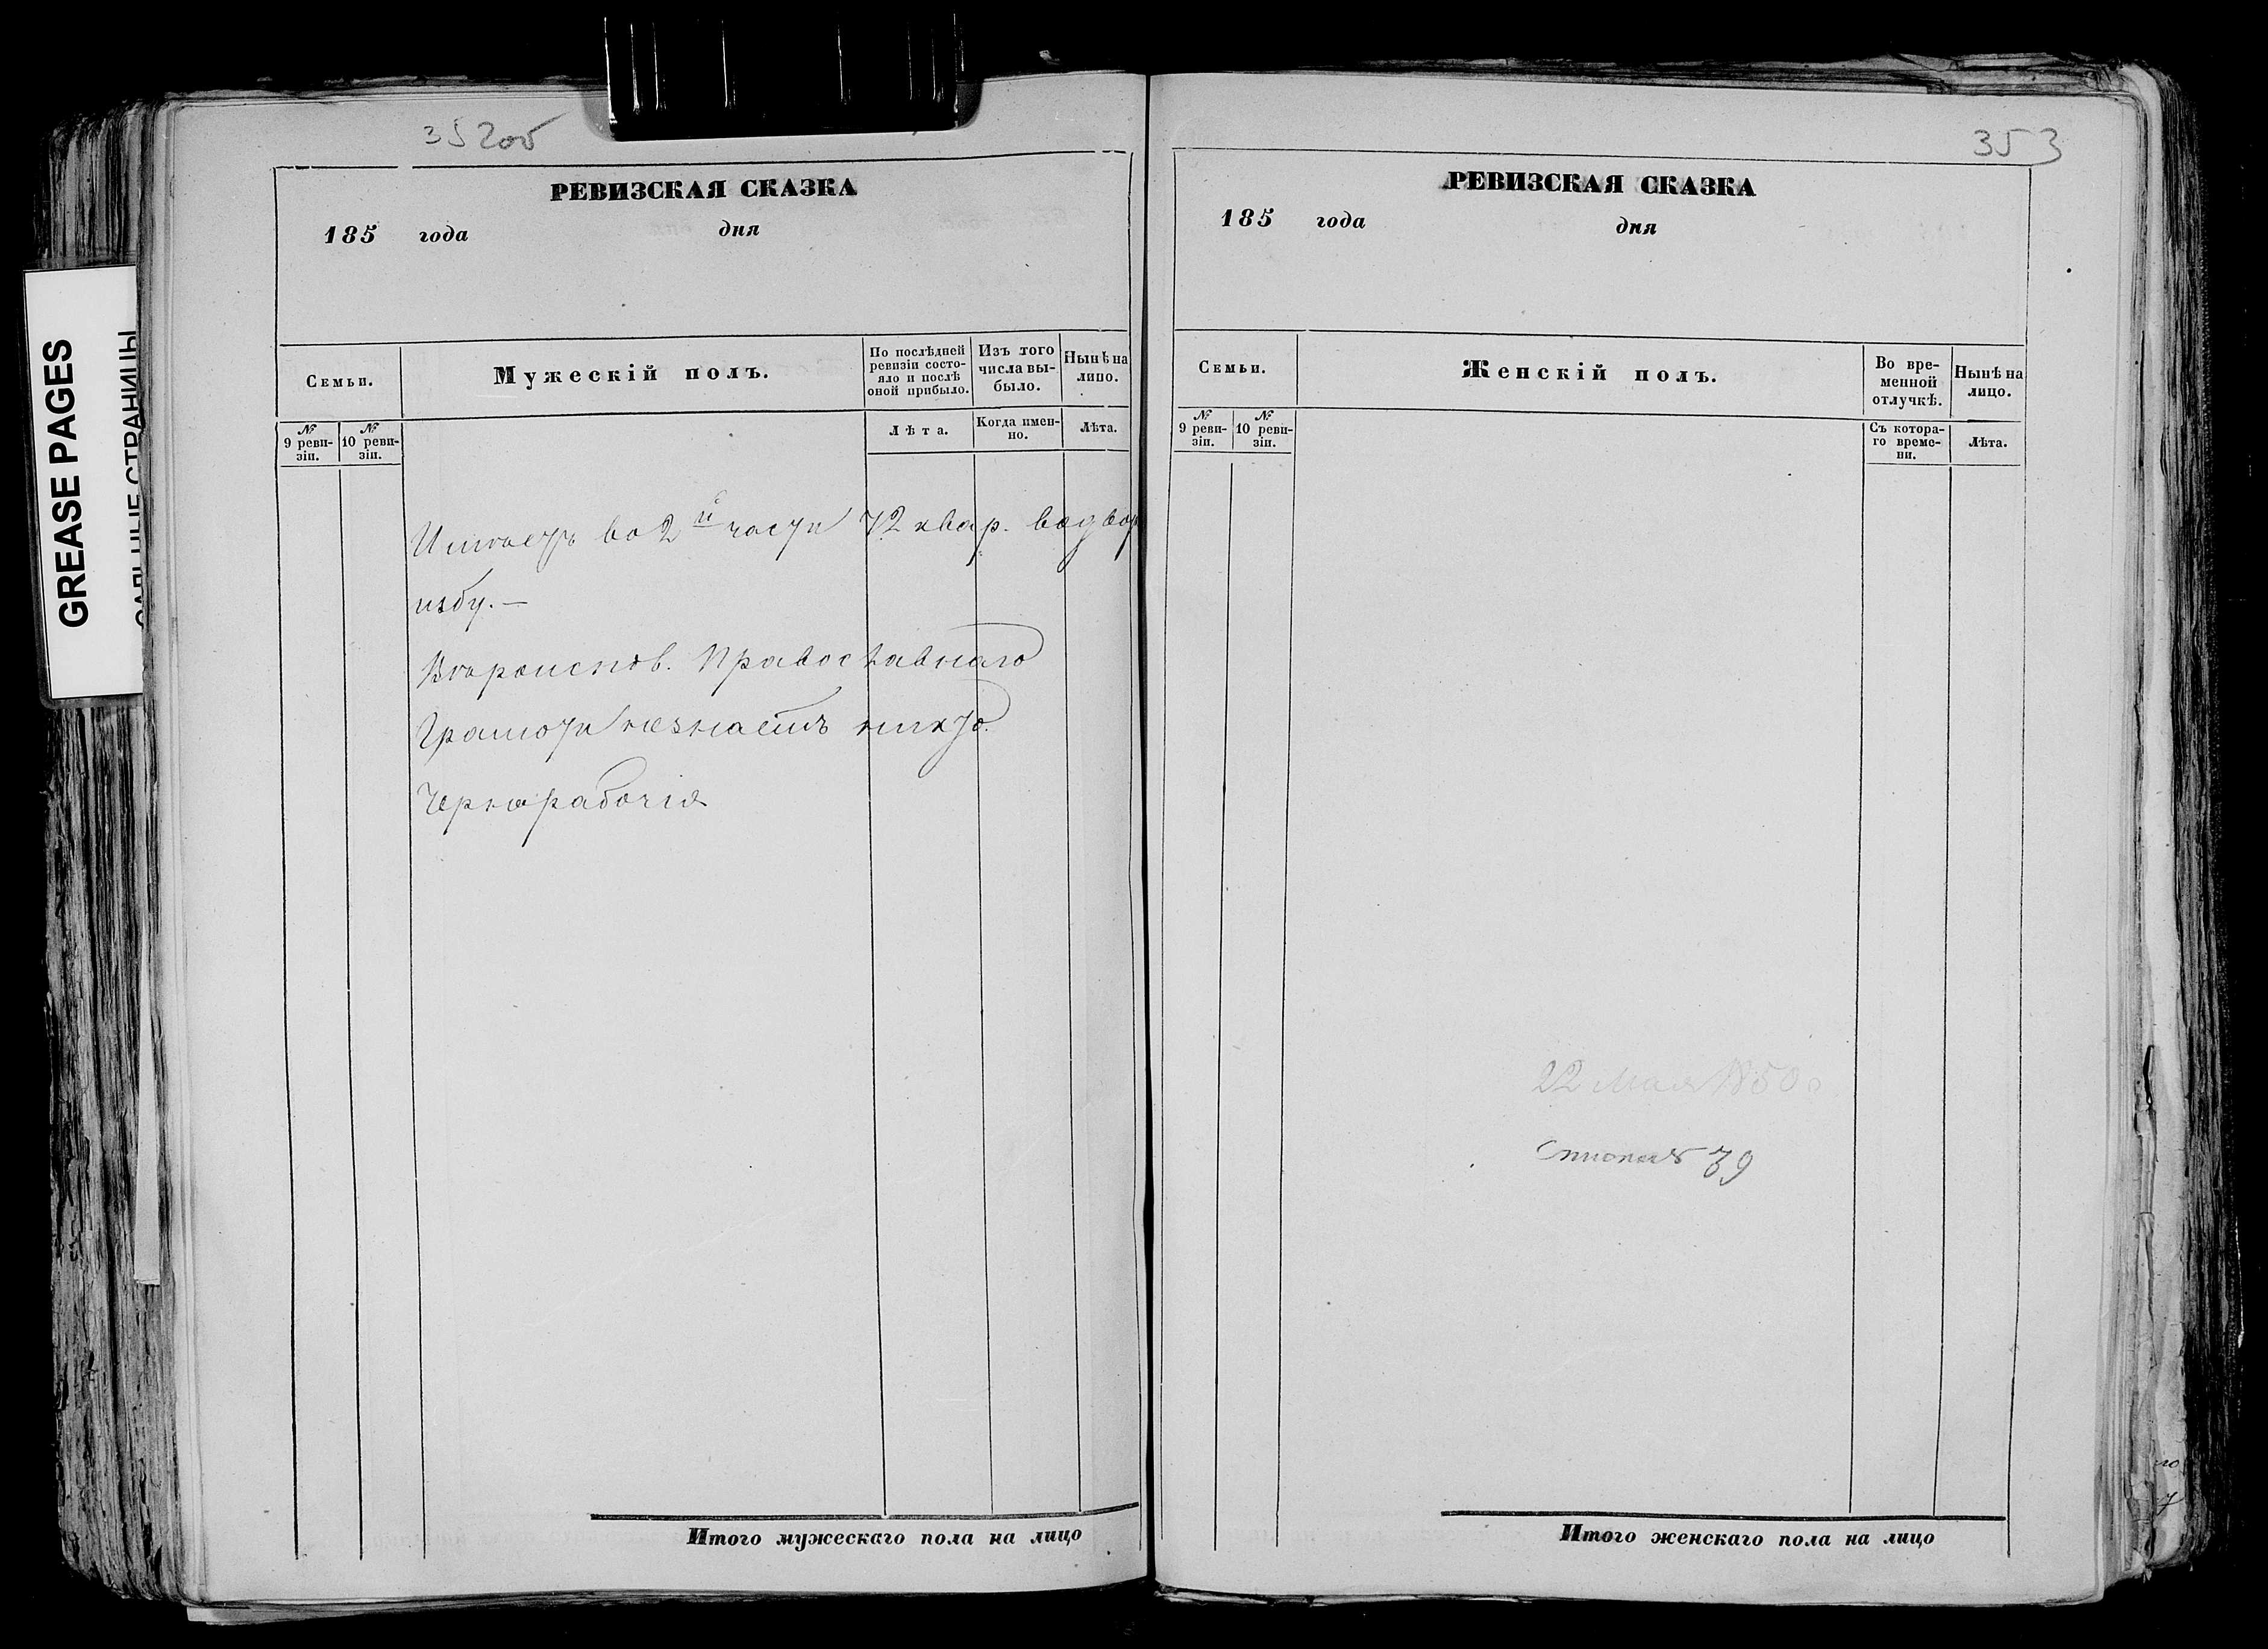 GREASE PAGES
САЛЬНЫЕ СТРАНИЦЫ
352об
РЕВИЗСКАЯ СКАЗКА
185 года дня
Семьи.
Мужескій полъ.
По послѣдней ревизіи состо-
яло и послѣ
оной прибыло.
Изъ того
числа вы-
было.
Нынѣ на
лицо.
№ 9 реви-
зіи.
№ 10 реви-
зіи.
Лѣта.
Когда имен-
но.
Лѣта.
Имѣетъ во 2й части 72 квар. водвор
избу. —
Вѣроиспов. Православнаго
Грамоти незнаетъ никто.
Чернорабочія
Итого мужескаго пола на лицо
353
РЕВИЗСКАЯ СКАЗКА
185 года дня
Семьи.
Женскій полъ.
Во вре-
менной
отлучкѣ.
Нынѣ на
лицо.
№ 9 реви-
зіи.
№ 10 реви-
зіи.
Съ котора-
го време-
ни.
Лѣта.
22 Мая 1850
39
Итого женскаго пола на лицо